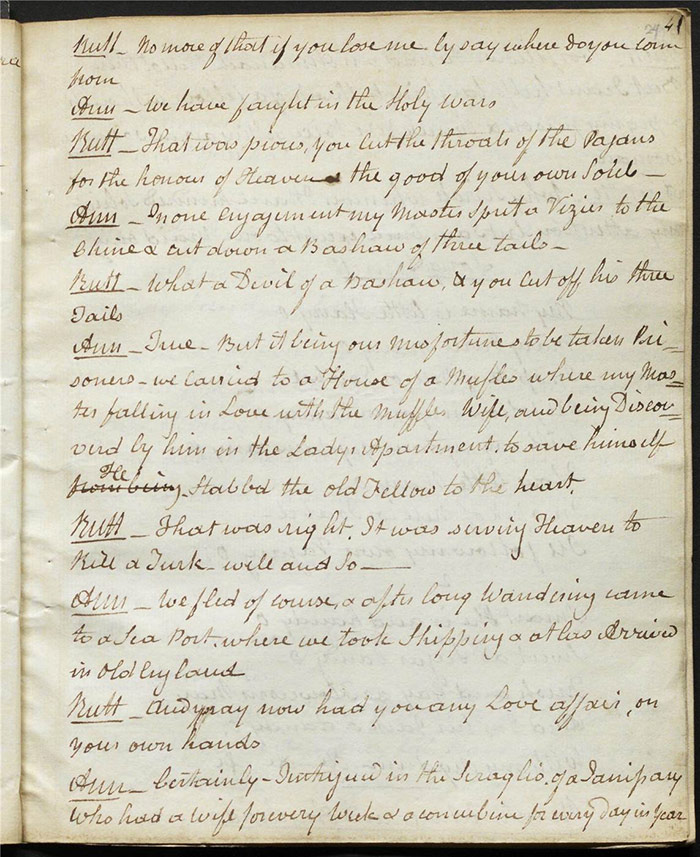 29 41
Butt - No more of that if you love me by say where do you come
from
Ann - We have faught in the Holy Wars
Butt - That was pious, you cut the throats of the Pagans
for the honour of Heaven & the good of your own Souls -
Ann - In one engagement my Master Sprit a Vizier to the
Chine & cut down a Bashaw of three tails -
Butt - What a Devil of a Bashaw, & you cut off his three
Tails
Ann - True - But it being our misfortunes to be taken Pri=
soners - we Carried to a House of a Muftes where my Mas=
ter falling in Love with the Muffles Wife, and being Discov=
verd by him in the Ladys Apartment, to save himself
from being He Stabbd the old Fellow to the heart.
Butt - That was right. It was serving Heaven to
Kill a Turk - well and So -
Ann - We fled of course, & after long Wandering came
to a Sea Port. where we took Shipping & at las Arrived
in old England
Butt - And pray now had you any Love affair, on
your own hands
Ann - Certainly - I intrigued in the Seraglio, of a Janissary
who had a wife for every Week & a concubine for every day in Year